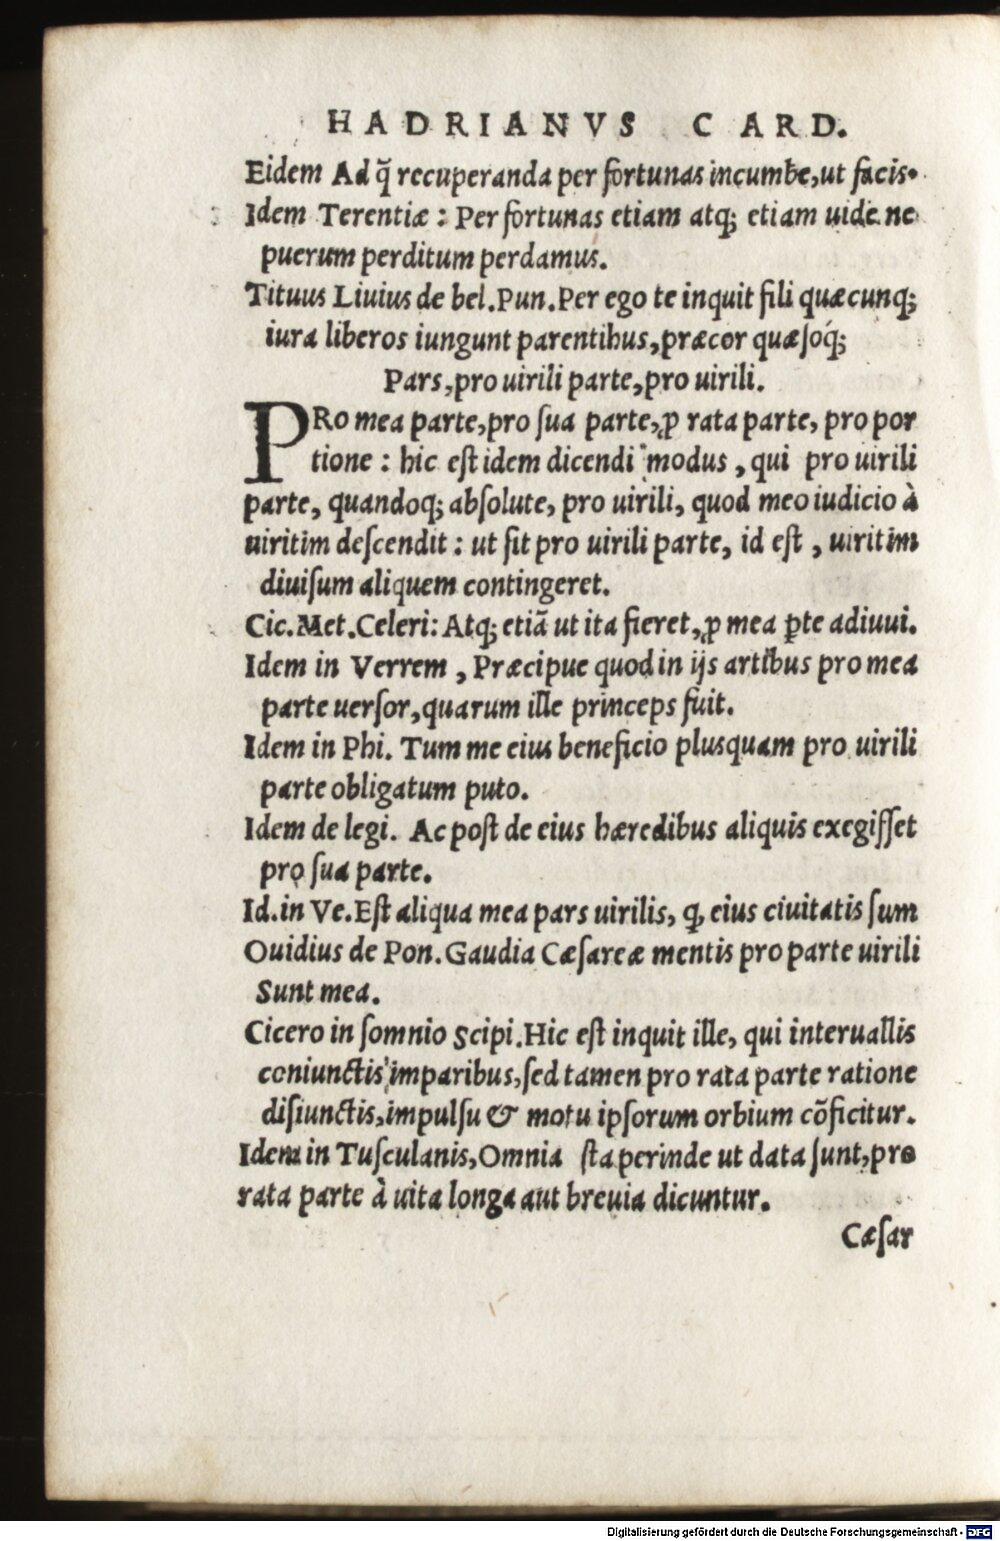 HADRIANVS CARD.
Eidem Ad q̃ recuperanda per fortunas incumbe,ut facis.
Idem Terentiæ : Per fortunas etiam atq; etiam uide ne
puerum perditum perdamus.
Tituus Liuius de bel.Pun.Per ego te inquit fili quæcunq;
iura liberos iungunt parentibus,præcor quæsoq́;
Pars,pro uirili parte,pro uirili.
PRo mea parte,pro sua parte,ꝓ rata parte, pro por
tione : hic est idem dicendi modus , qui pro uirili
parte, quandoq; absolute, pro uirili, quod meo iudicio à
uiritim descendit : ut sit pro uirili parte, id est , uiritim
diuisum aliquem contingeret.
Cic.Met.Celeri: Atq; etiã ut ita fieret,ꝓ mea ꝑte adiuui.
Idem in Verrem , Præcipue quod in ijs artibus pro mea
parte uersor,quarum ille princeps fuit.
Idem in Phi. Tum me eius beneficio plusquam pro uirili
parte obligatum puto.
Idem de legi. Ac post de eius hæredibus aliquis exegisset
pro sua parte.
Id.in Ve.Est aliqua mea pars uirilis, q; eius ciuitatis sum
Ouidius de Pon.Gaudia Cæsareæ mentis pro parte uirili
Sunt mea.
Cicero in somnio Scipi.Hic est inquit ille, qui interuallis
coniunctis imparibus,sed tamen pro rata parte ratione
disiunctis,impulsu & motu ipsorum orbium cõficitur.
Idem in Tusculanis,Omnia sta perinde ut data sunt,pro
rata parte à uita longa aut breuia dicuntur.
Cæsar
Digitalisierung gefördert durch die Deutsche Forschungsgemeinschaft - DFG